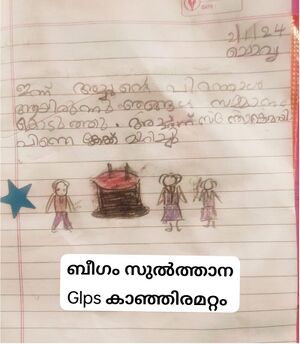 DATE
2/1/24
ചൊവ്വ
ഇന്ന് പിറന്നാൾ
ആയിരുന്നു ഞങ്ങൾ സമ്മാനം
കൊടുത്തു. സന്തോഷമായി
പിന്നെ കേക്ക് മുറിച്ചു
ബീഗം സുൽത്താന
Glps കാഞ്ഞിരമറ്റം